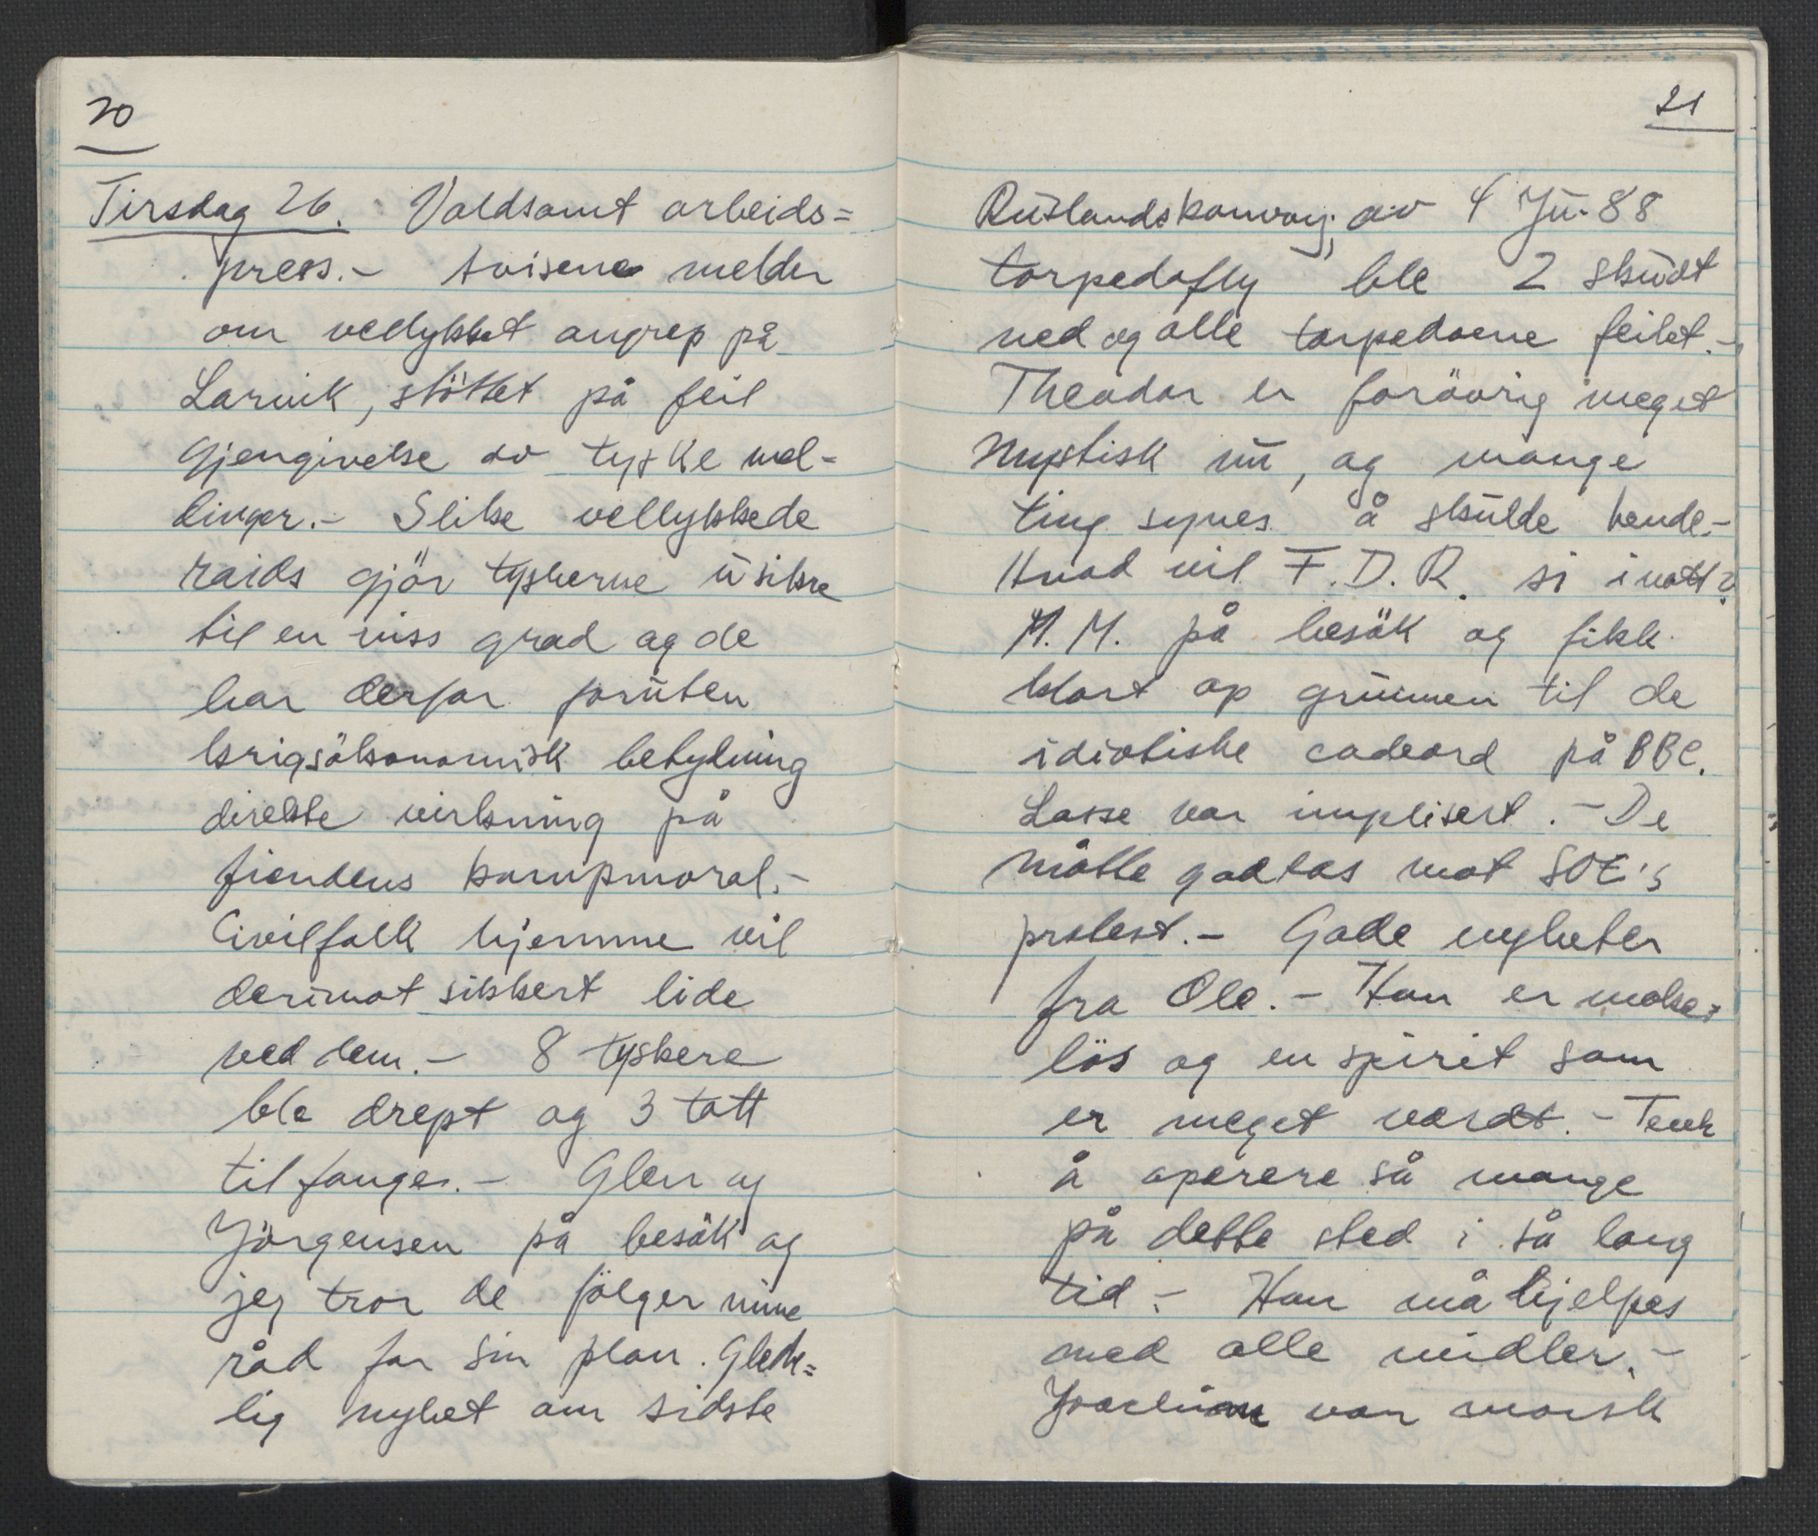 20
Tirsdag 26. Voldsomt arbeids=
press.- Avisene melder
om vellykket angrep på
Larvik, støttet på feil
gjengivelse av tyske mel-
dinger.- Slike vellykkede
raids gjör tyskerne usikre
til en viss grad og de
har derfor foruten
krigsökonomisk betydning
direkte virkning på
fiendens kampmoral.-
Civilfolk hjemme vil
derimot sikkert lide
ved dem.- 8 tyskere
ble drept og 3 tatt
til fange.- Glen og
Jörgensen på besök og
jeg tror de fölger mine
råd for sin plan. Glede=
lig nyhet om sidste
21
Ruslandskonvoy; av 4 Ju-88
torpedofly ble 2 skudt
ned og alle torpedoene feilet.-
Theodor er forövrig meget
mystisk nu, og mange
ting synes å skulde hende.-
Hvad vil F.D.R. si i natt?
M.M. på besök og fikk
klart op grunnen til de
idiotiske codeord på BBC.
Lasse var implisert.- De
måtte godtas mot SOE's
protest.- Gode nyheter
fra Ole.- Han er make=
lös og en spirit som
er meget værdt.- Tenk
å operere så mange
på dette sted i så lang
tid.- Han må hjelpes
med alle midler.-
Joachim var morsk